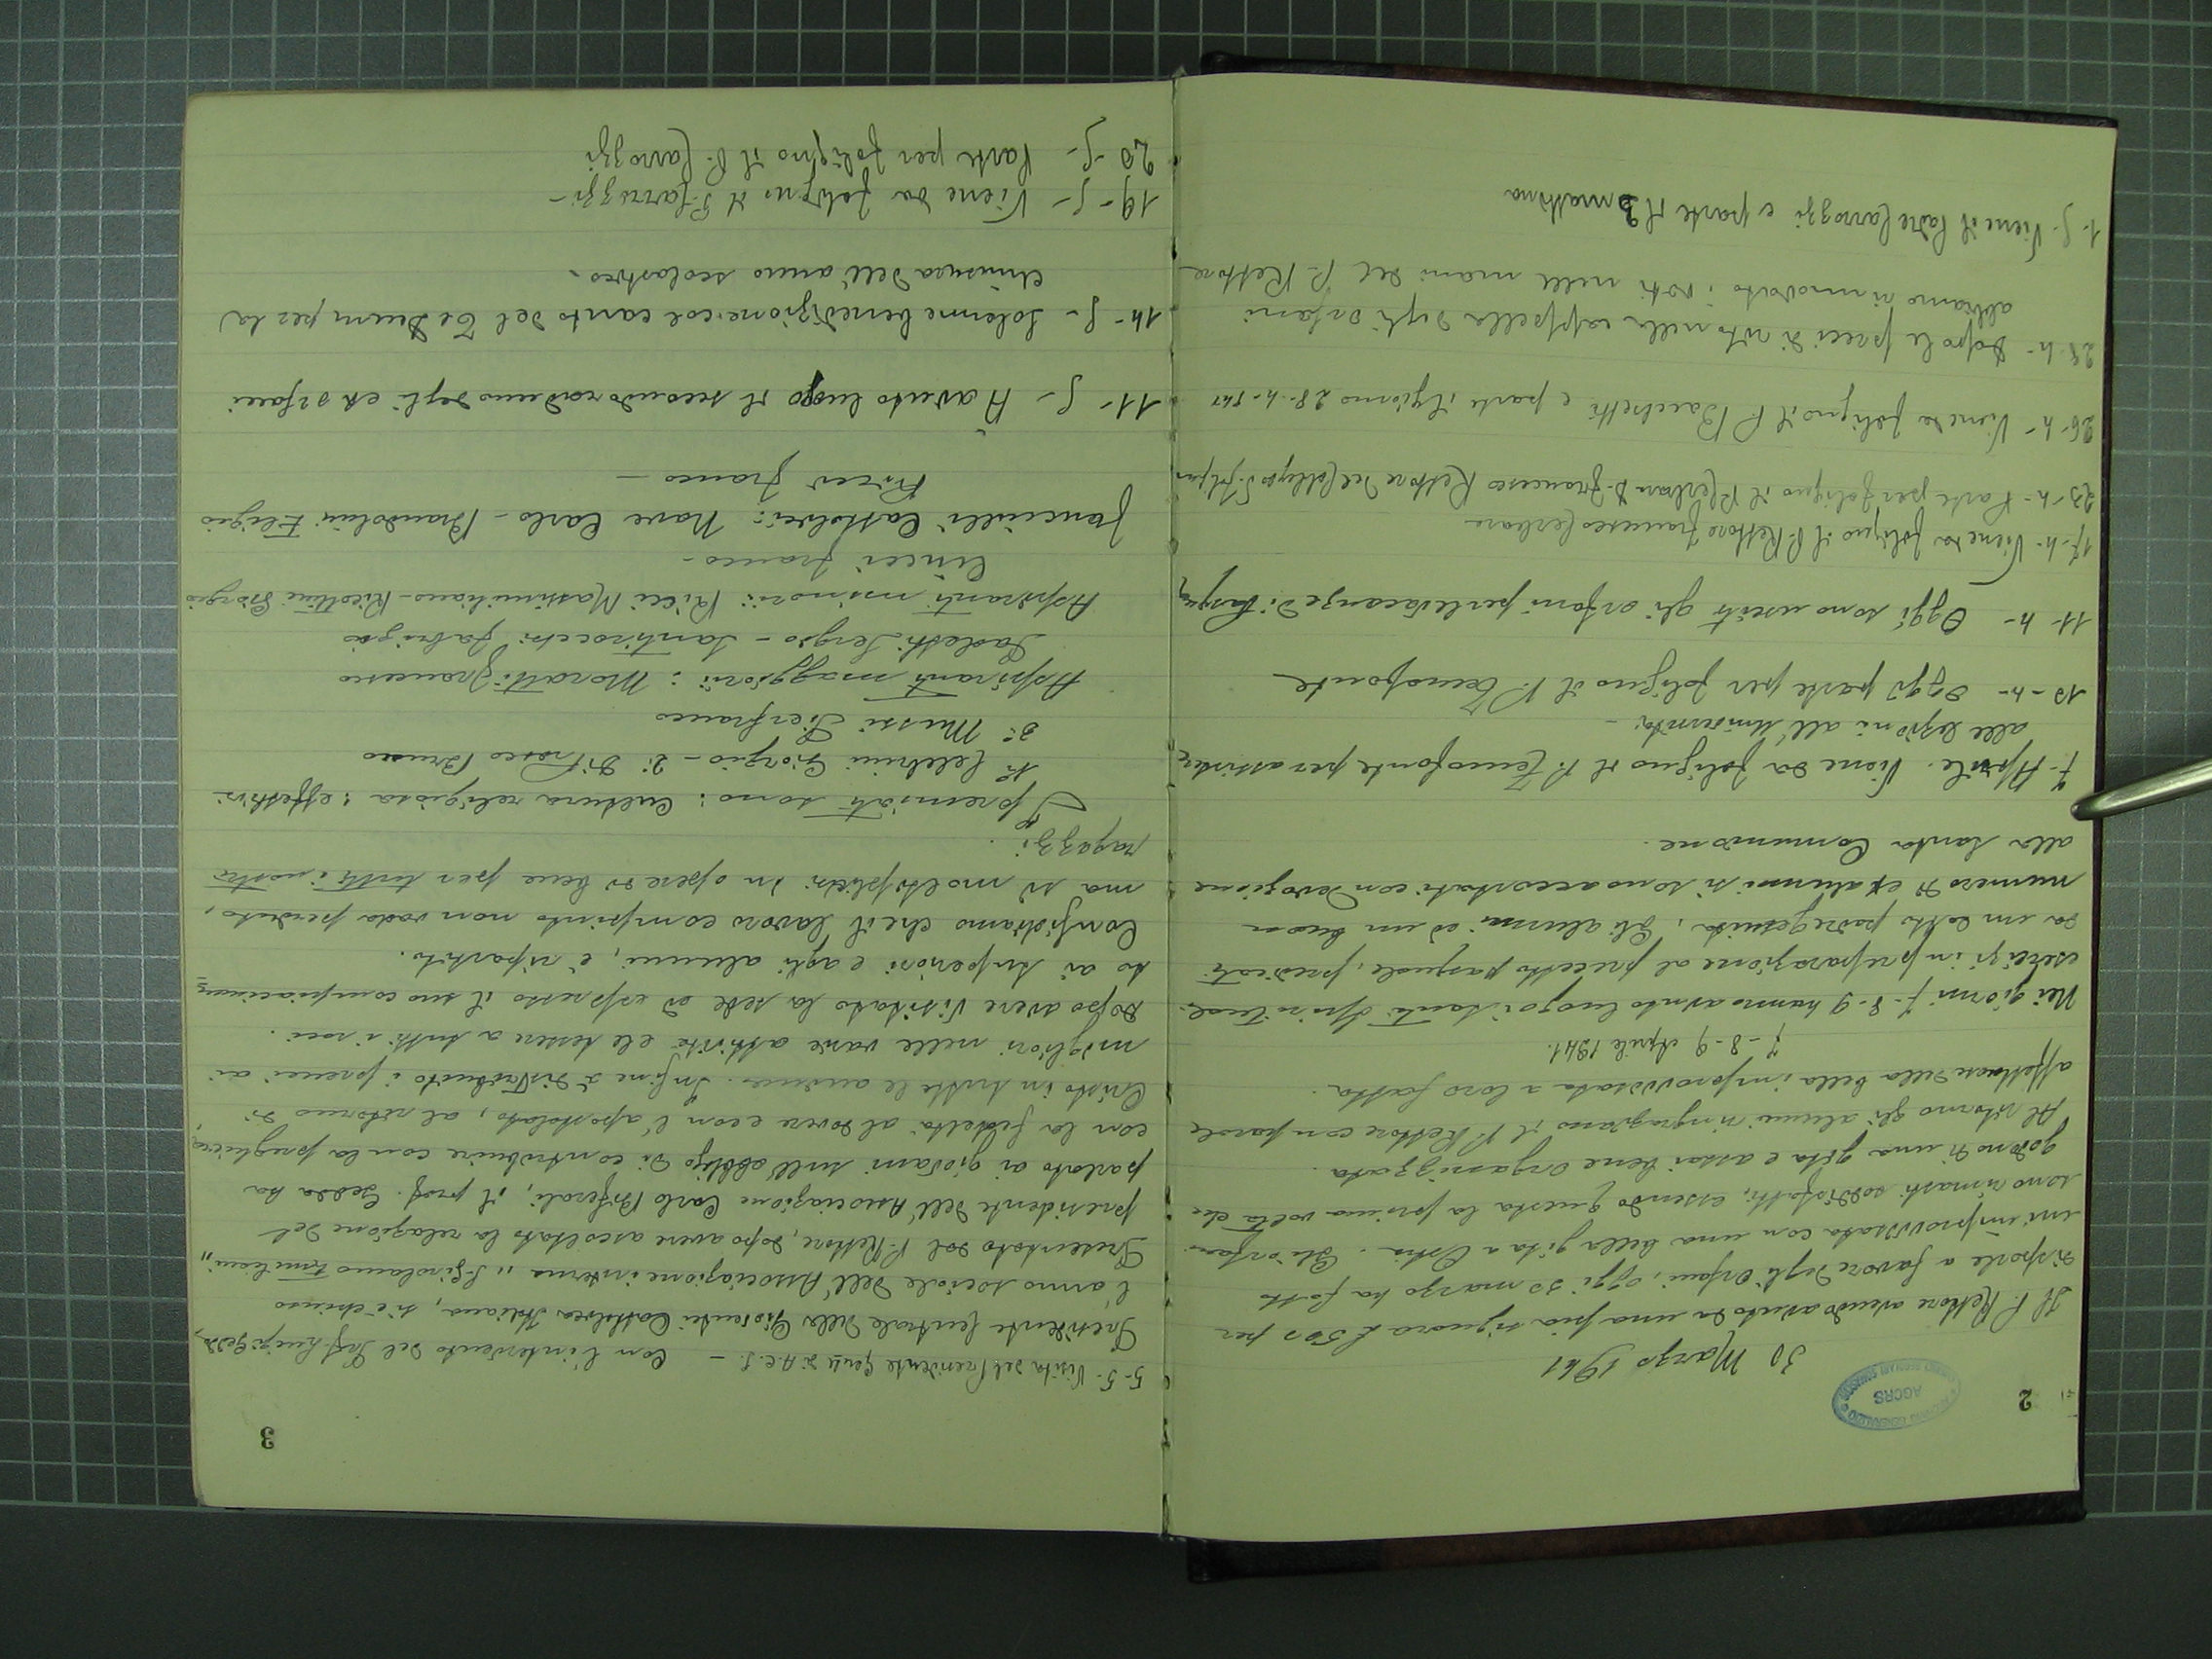 2
ARCHIVIO GENERALIZIO
AGCRS
CHIERICI REGOLARI SOMASCHI
30 Marzo 1941
Il P. Rettore avendo avuto da una pia signora £ 500 per
disporle a favore degli Orfani, oggi 30 marzo ha fatto
un'improvvisata con una bella gita a Ostia. Gli orfani
sono rimasti soddisfatti, essendo questa la prima volta che
godono di una gita e assai bene organizzata.
Al ritorno gli alunni ringraziano il P. Rettore con parole
affettuose della bella improvvisata a loro fatta.
7-8-9 Aprile 1941.
Nei giorni 7-8-9 hanno avuto luogo i santi spirituali
esercizi in preparazione al precetto pasquale, predicati
da un dotto padre gesuita. Gli alunni ed un buon
numero di ex alunni si sono accostati con devozione
alla Santa Comunione.
7- Aprile. Viene da Foligno il P. Temofonte per assistere
alle lezioni all'Università.
10-4- Oggi parte per Foligno il P. Temofonte
11-4- Oggi sono usciti gli orfani per le vacanze di Pasqua
17-4- Viene da Foligno il P. Rettore Francesco Cerbara
23-4- Parte per Foligno il P. Cerbara D. Francesco Rettore del Collegio
26-4- Viene da Foligno il P. Bacchetti e parte il giorno 28-4-
28-4- Dopo le preci di rito nella cappella degli orfani
abbiamo rinnovato i voti nelle mani del P. Rettore
1-5- Viene il Padre Carrozzi e parte il 3 mattina
3
5-5- Visita del Presidente di A.C.I. - Con l'intervento del Prof. Luigi Gedda,
Presidente Centrale della Gioventù Cattolica Italiana, si è chiuso
l'anno sociale dell'Associazione interna "S. Girolamo Emiliani"
Presentato dal P. Rettore, dopo avere ascoltato la relazione del
presidente dell'Associazione Carlo Biferali, il prof. Gedda ha
parlato ai giovani sull'obbligo di contribuire con la preghiera,
con la fedeltà al dovere e con l'apostolato, al ritorno di
Cristo in tutte le anime. Infine à distribuito i premi ai
migliori nelle varie attività e le tessere a tutti i soci.
Dopo avere visitato la sede ed espresso il suo compiacimen=
to ai superiori e agli alunni, è ripartito.
Confidiamo che il lavoro compiuto non vada perduto,
ma si moltiplichi in opere di bene per tutti i nostri
ragazzi.
I premiati sono: Cultura religiosa: effettivi
1° Celebrini Giorgio - 2° Di Prosco Bruno
3° Mussi Pierfranco
Aspiranti maggiori: Moratti Francesco
Sadetti Sergio - Santirocchi Fabrizio
Aspiranti minori: Ricci Massimiliano - Ricottini Giorgio
Cincci Franco -
Fanciulli Cattolici: Nave Carlo - Brandolini Eligio
Franco -
11-5- À avuto luogo il secondo raduno degli ex orfani
14-5- Solenne benedizione col canto del Te Deum per la
chiusura dell'anno scolastico.
19-5- Viene da Foligno il P. Carrozzi -
20-5- Parte per Foligno il P. Carrozzi